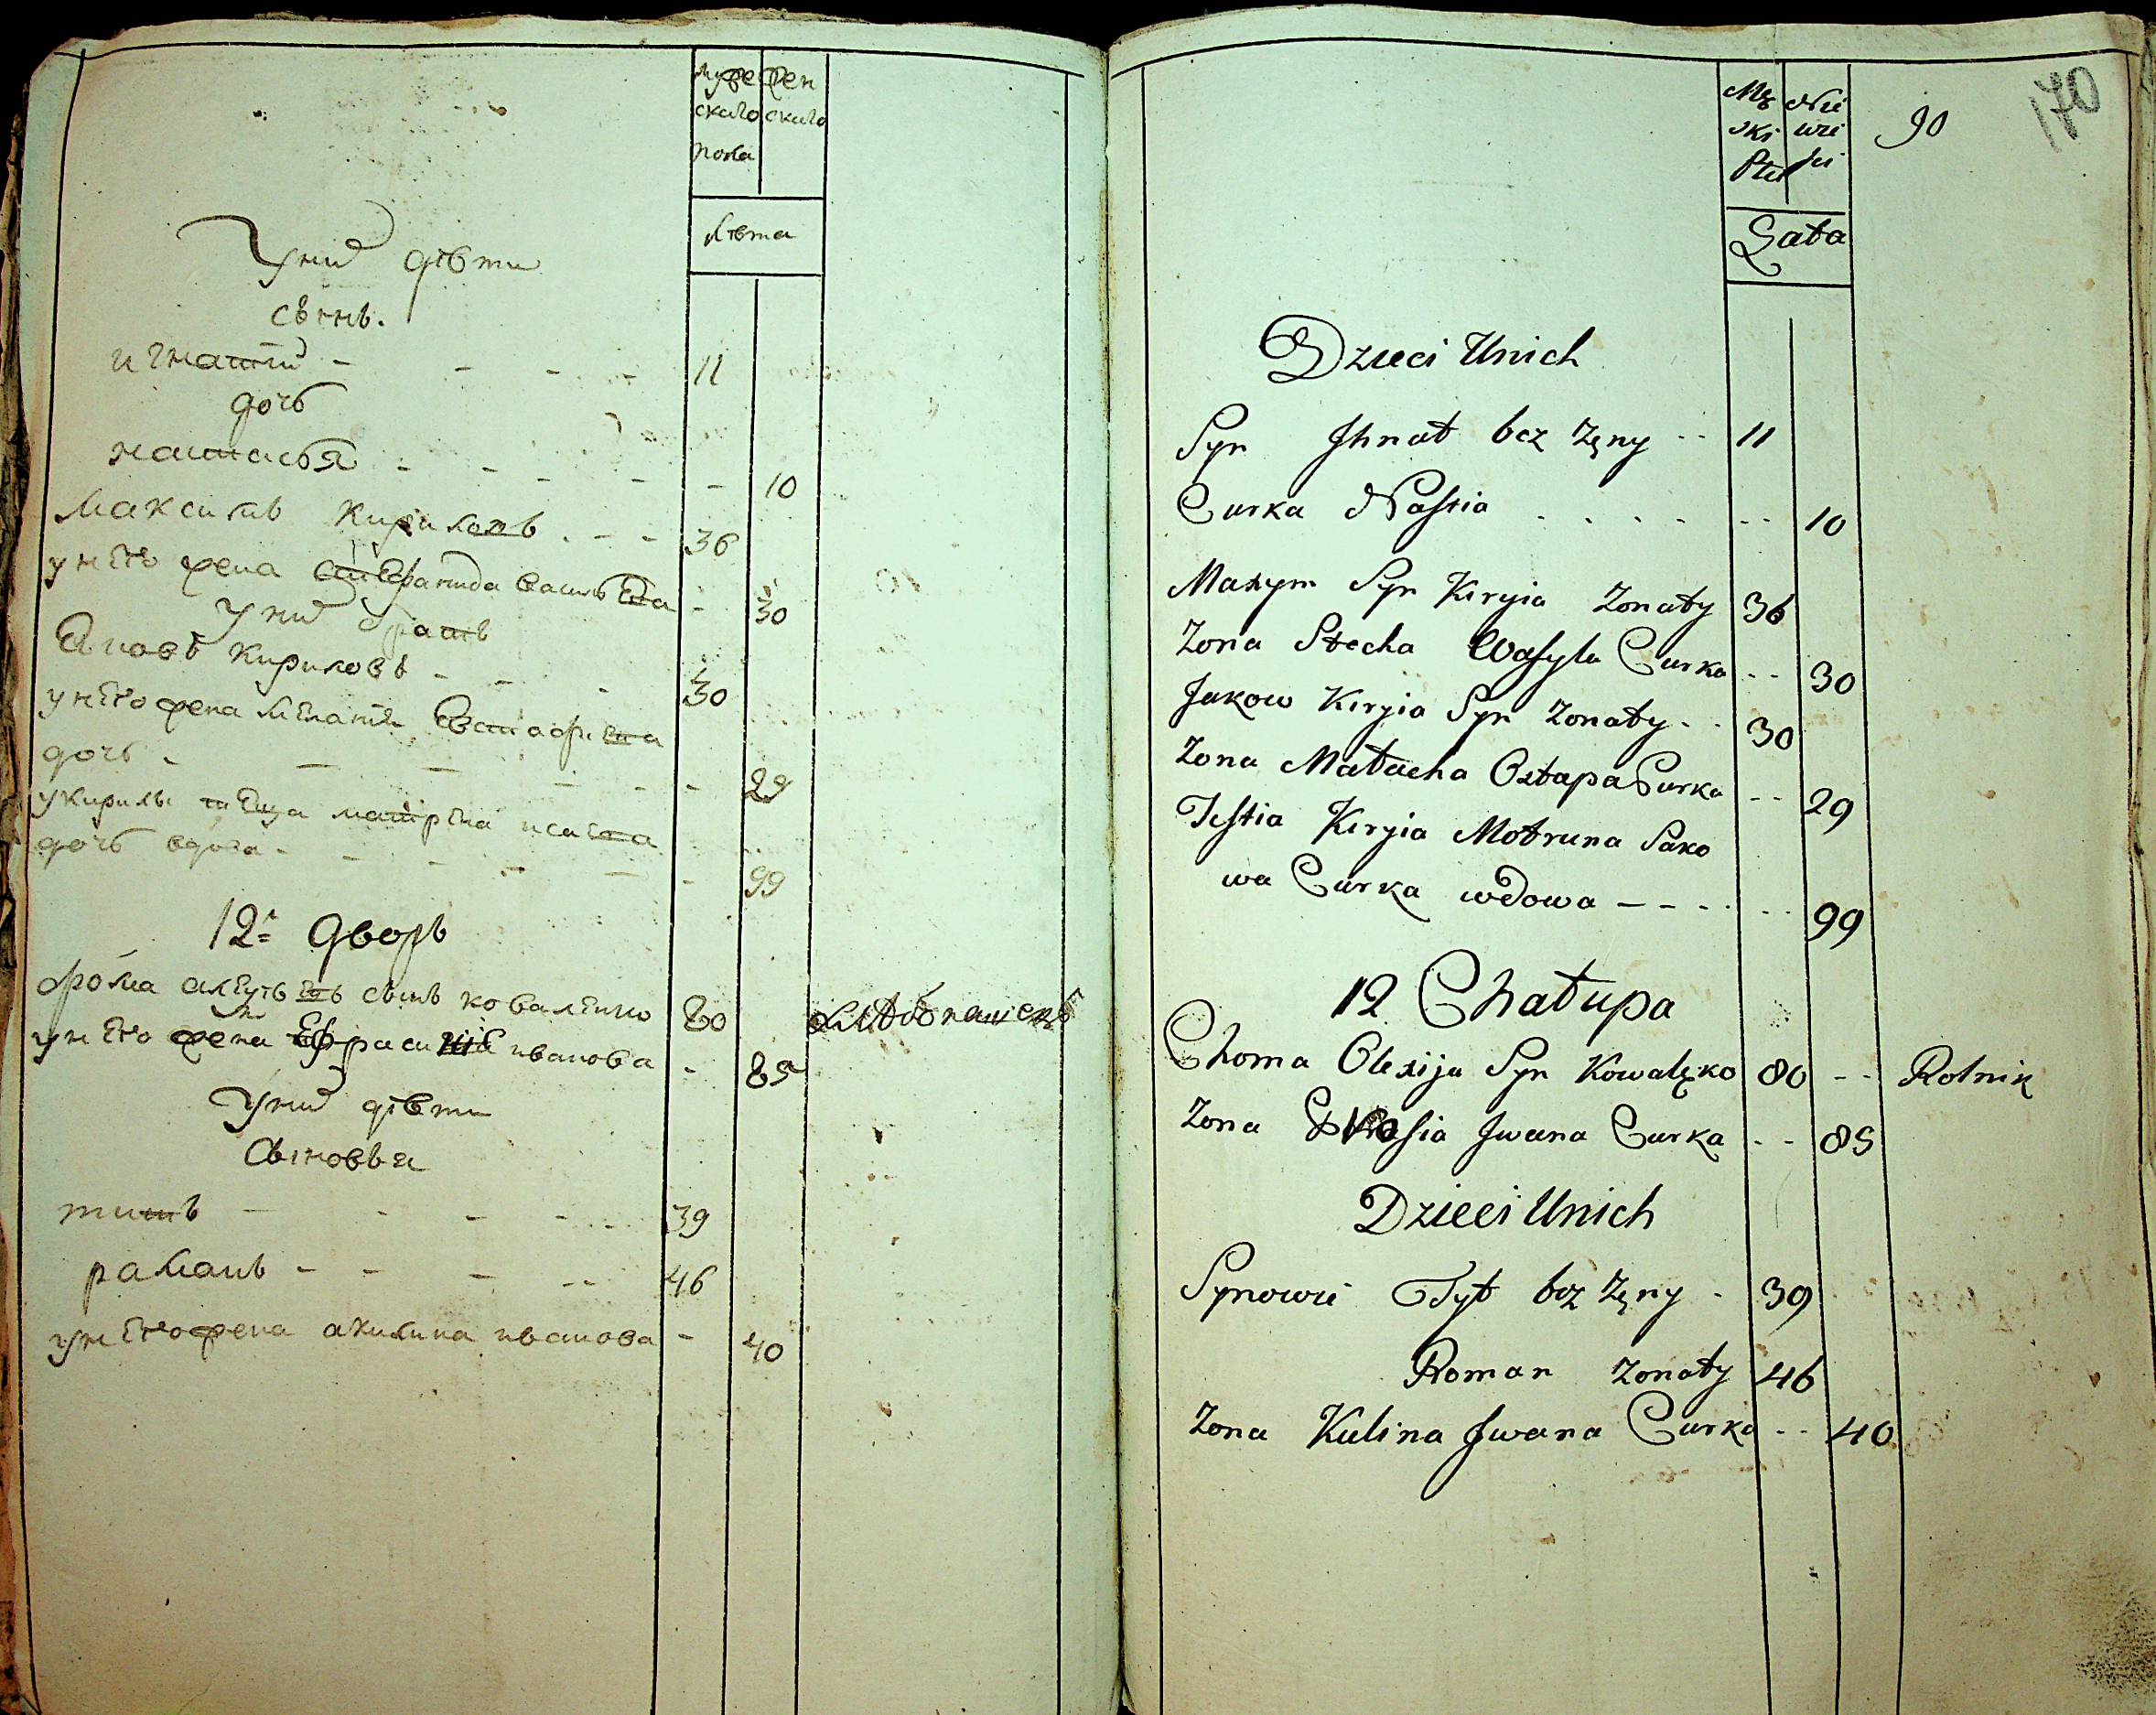 муже жен
скаго скаго
пола
лѣта
У них дѣти
сынъ.
игнатій - - - - 11
дочь
настасья - - - - - 10
Максимъ Кириловъ - - - 36
у него жена Степанида васильева - 30
У них братъ
Яковъ Кириловъ - - - 30
у него жена Меланья Евстафіева
дочь - - - - - - 29
у кирилы теща матрена исаева
дочь вдова - - - - - - 99
12й дворъ
фома алексѣевъ сынъ коваленко 80 хлебопашецъ
у него жена Ефрасинія иванова - 85
У них дѣти
Сыновья
титъ - - - - - 39
романъ - - - - 46
у него жена акилина иванова - 40
90
170
Mę Nie
ski wie
Płci ści
Lata
Dzieci Unich
Syn Ihnat bez Zęny - - 11
Curka Nastia - - - - - - 10
Maxym Syn Kiryia Zonaty 36
Zona Stecha Wasyla Curka - - 30
Jakow Kiryia Syn Zonaty - - 30
Zona Małacha Ostapa Curka - - 29
Testia Kiryia Motruna Sako
wa Curka wdowa - - - - - - 99
12 Chałupa
Choma Olexija Syn Kowalęko 80 - - Rolnik
Zona Iwana Curka - - 85
Dzieci Unich
Synowie Tyt bez Zęny - 39
Roman Zonaty 46
Zona Kulina Iwana Curka - - 40